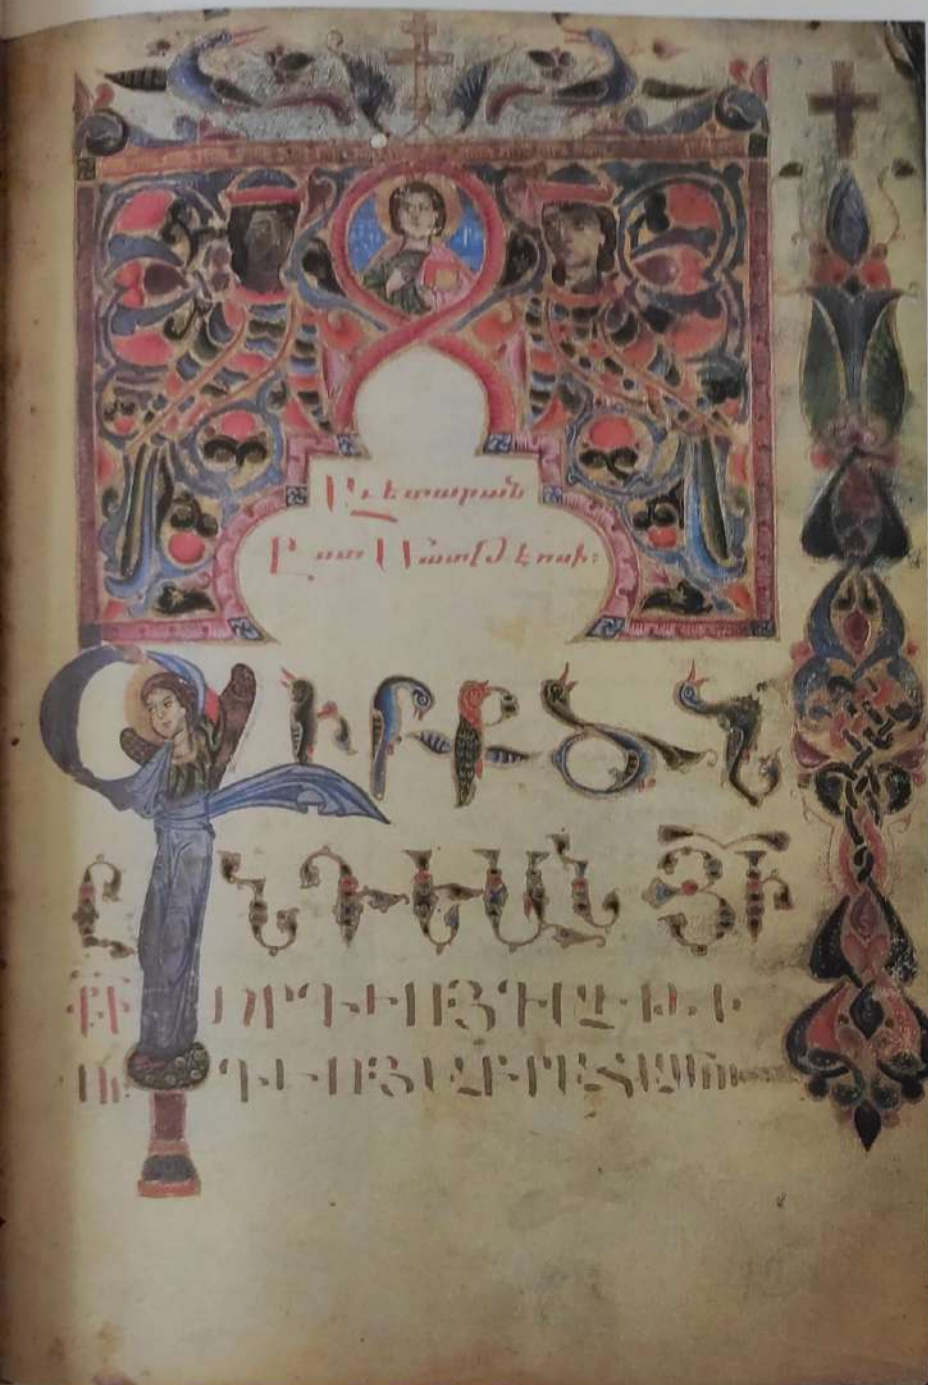 Աւետարան
Ըստ Մատթէոսի:
ԳԻՐՔ ԾՆ
ԸՆԴԵԱՆ ՅԻ
ՔԻ ՈՐԴՒՈՅ ԴԱՒԹԻ
ՈՐԴՒՈՅ ԱԲՐԱՀԱՄՈՒ